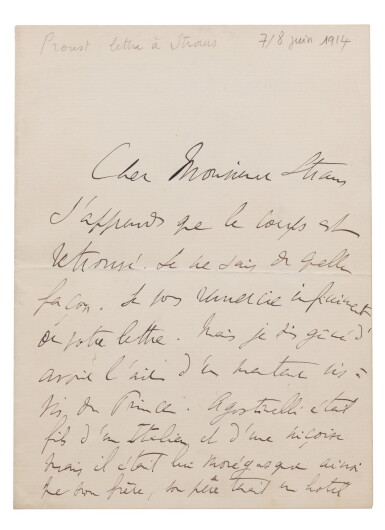 Proust lettre à Straus 7/8 juin 1914
Cher Monsieur Straus
J'apprends que le corps est
retrouvé. Je ne sais de quelle
façon. Je vous remercie infiniment
de votre lettre. Mais je suis gêné d'
avoir l'air d'un menteur vis à
vis du Prince. Agostinelli était
fils d'un Italien et d'une niçoise
mais il était lui monégasque ainsi
que son frère, son père tenait un hotel